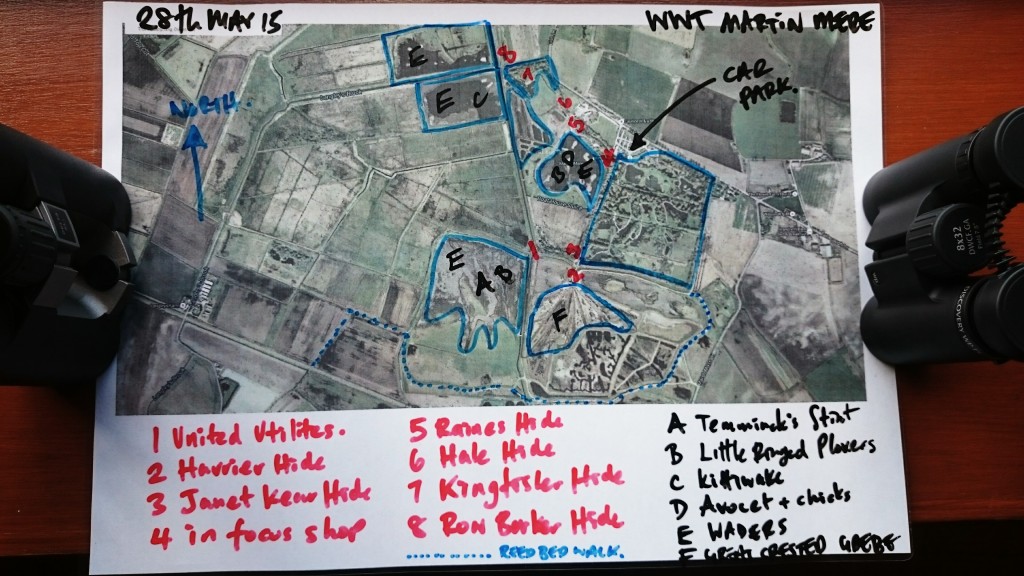 28th MAY 15
WWT MARTIN MERE
CAR
PARK.
NORTH.
E
E C
8
7
6
5
4
D
B E
E
A B
1
3
2
F
1 United Utilites.
2 Harrier Hide
3 Janet Kear Hide
4 in focus shop
5 Raines Hide
6 Hale Hide
7 Kingfisher Hide
8 Ron Barker Hide
REEDBED WALK.
A Temminck's Stint
B Little Ringed Plovers
C Kittiwake
D Avocet + chicks
E WADERS
F GREAT CRESTED GREBE
8x32
DWCF.GA
DISCOVERY